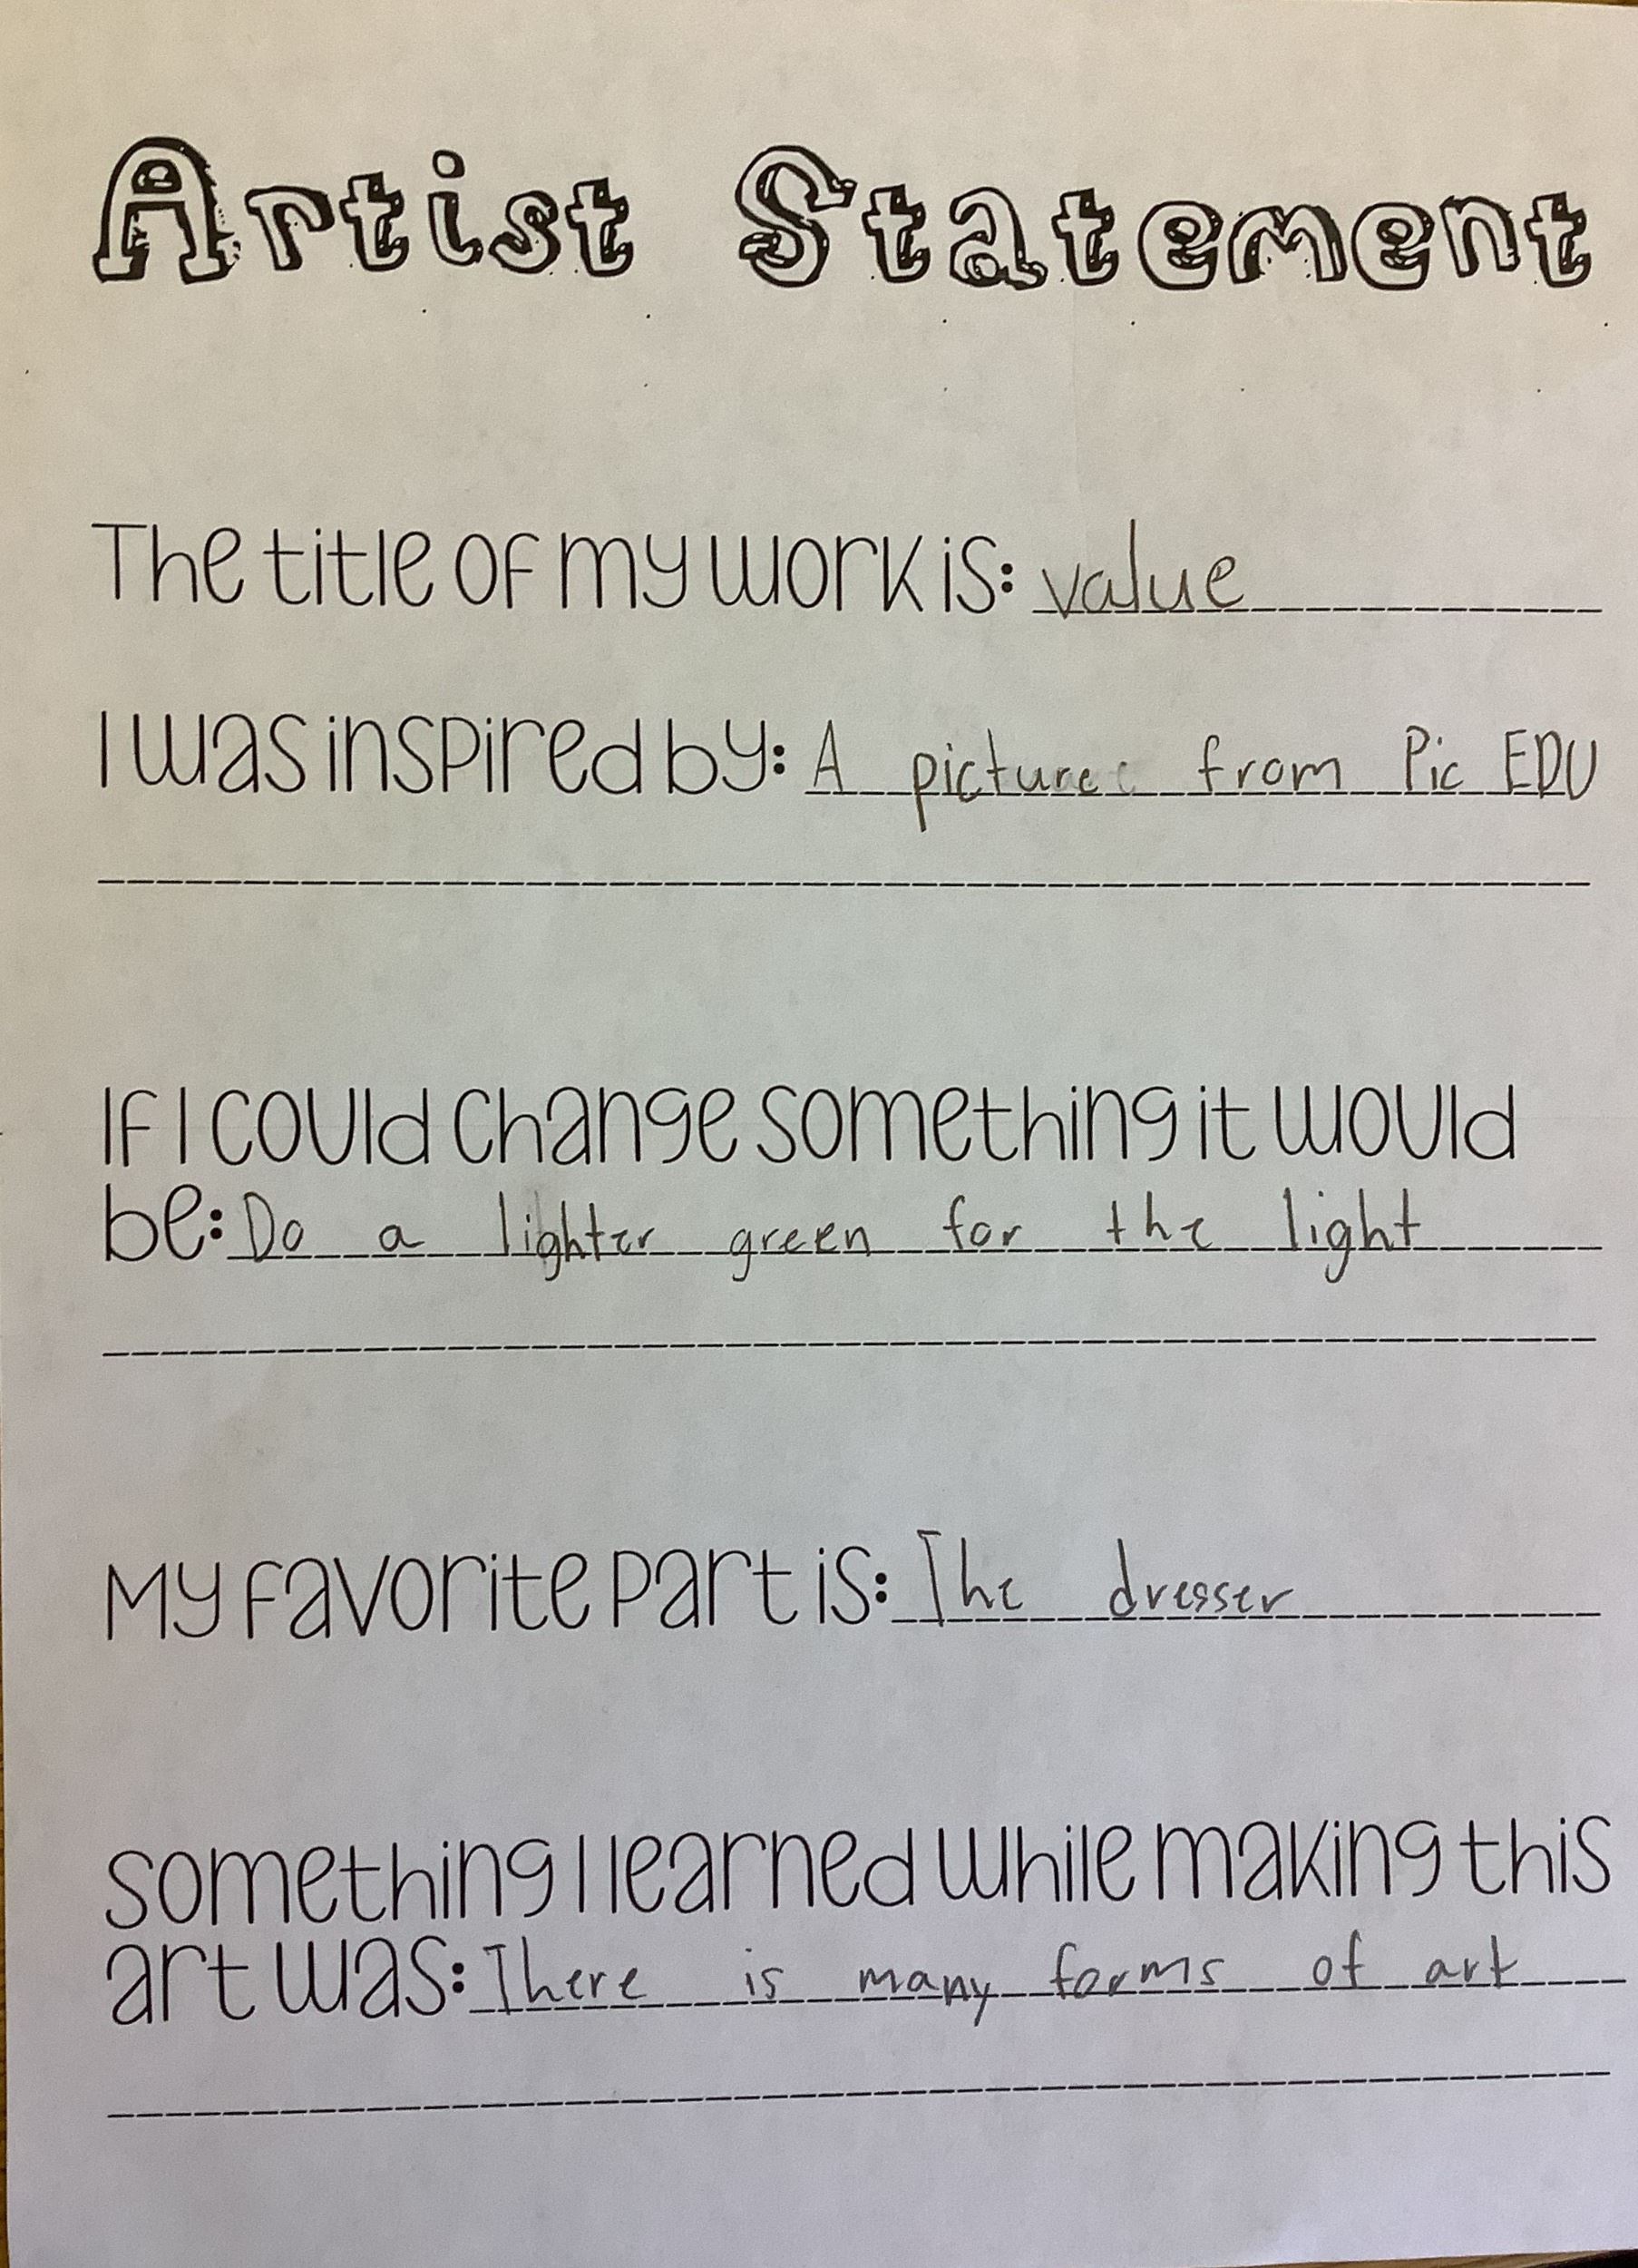 Artist Statement
The title of my work is: value
I was inspired by: A picture from Pic EDU
If I could change something it would
be: Do a lighter green for the light
My favorite part is: The dresser
Something I learned while making this
art was: There is many forms of art